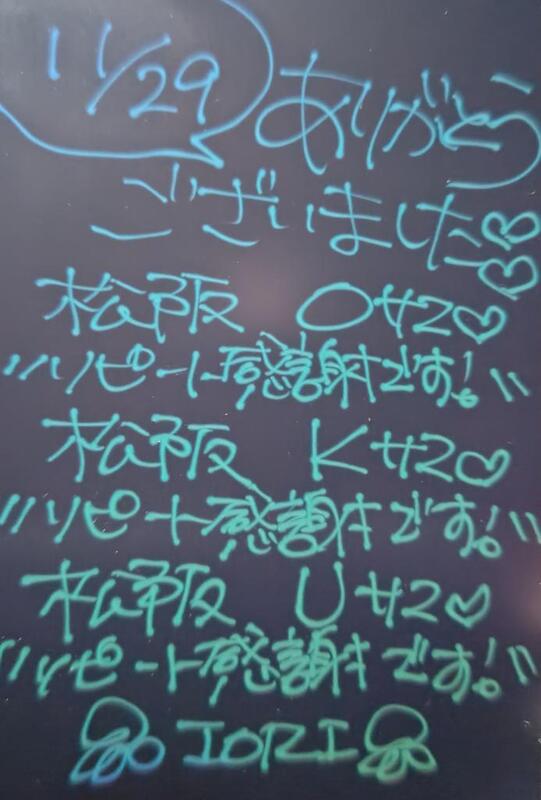 11/29
ありがとう
ございました♡♡
松阪 Oサン♡
"リピート感謝です!"
松阪 Kサン♡
"リピート感謝です!"
松阪 Uサン♡
"リピート感謝です!"
IORI